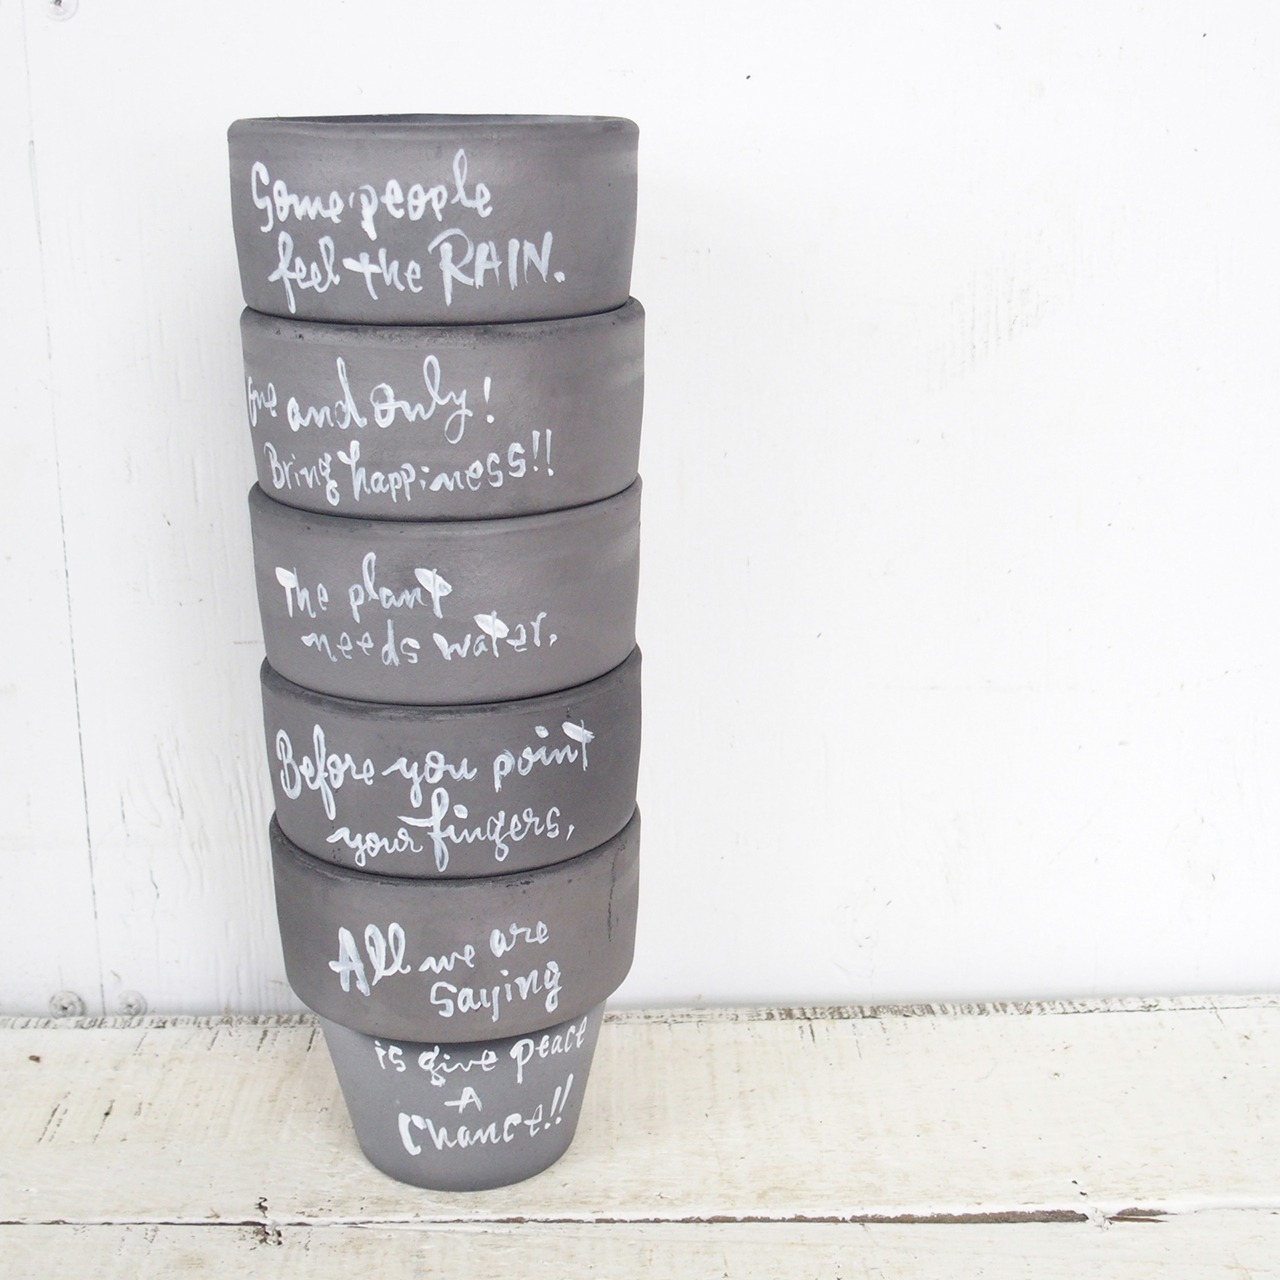 Some people
feel the RAIN.
one and only!
Bring happiness!!
The plant
needs water.
Before you point
your fingers,
All we are
saying
is give peace
A
chance!!